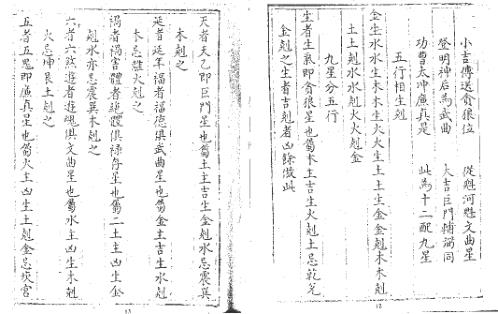 小吉傳送貪狼位　從魁河魁文曲星
登明神后為武曲　大吉巨門輔弼同
功曹太冲廉貞是　此為十二配九星
五行相生剋
金生水水生木木生火火生土土生金金剋木木剋
土土剋水水剋火火剋金
九星分五行
生者生氣即貪狼星也屬木主吉生火剋土忌乾兌
金剋之生者吉剋者凶餘倣此
12
天者天乙即巨門星也屬土主吉生金剋水忌震巽
木剋之
延者延年福者福德俱武曲星也屬金主吉生水剋
木忌離火剋之
禍者禍害體者絕體俱祿存星也屬二土主凶生金
剋水亦忌震巽木剋之
六者六殺遊者遊魂俱文曲星也屬水主凶生木剋
火忌坤艮土剋之
五者五鬼即廉貞星也屬火主凶生土剋金忌坎宮
13